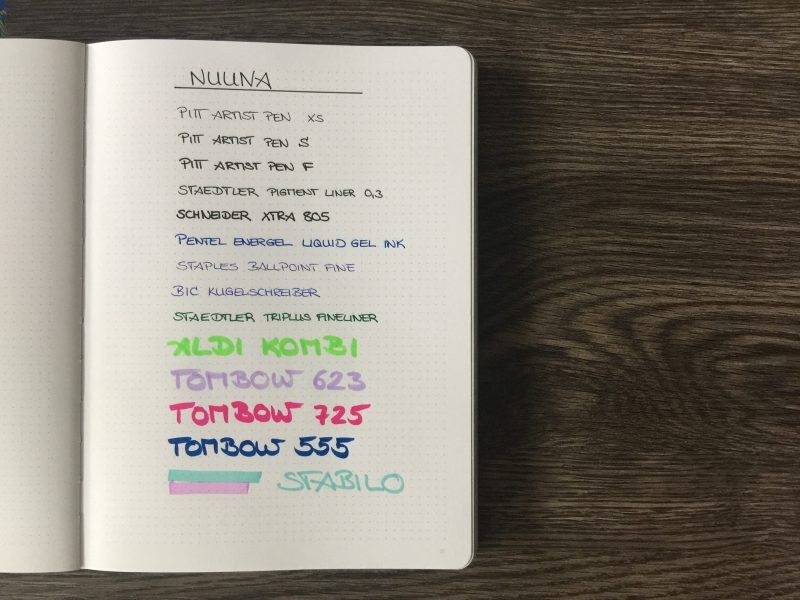 NUUNA
PITT ARTIST PEN XS
PITT ARTIST PEN S
PITT ARTIST PEN F
STAEDTLER PIGMENT LINER 0,3
SCHNEIDER XTRA 805
PENTEL ENERGEL LIQUID GEL INK
STAPLES BALLPOINT FINE
BIC KUGELSCHREIBER
STAEDTLER TRIPLUS FINELINER
ALDI KOMBI
TOMBOW 623
TOMBOW 725
TOMBOW 555
STABILO